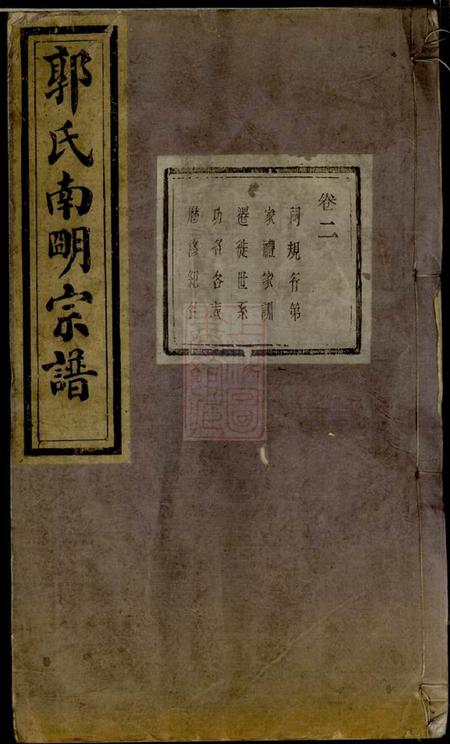 郭氏南明宗譜
卷二
祠規行第
家禮家訓
遷徙世系
功名各表
歷修紀